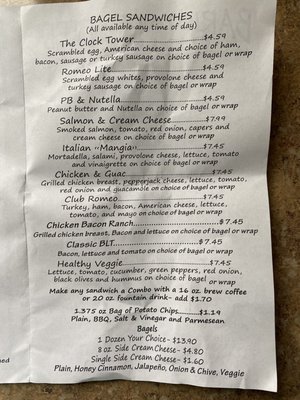 BAGEL SANDWICHES
(All available any time of day)
The Clock Tower...................$4.59
Scrambled egg, American cheese and choice of ham,
bacon, sausage or turkey sausage on choice of bagel or wrap
Romeo Lite.......................$4.59
Scrambled egg whites, provolone cheese and
turkey sausage on choice of bagel or wrap
PB & Nutella.....................$4.59
Peanut butter and Nutella on choice of bagel or wrap
Salmon & Cream Cheese.........$7.99
Smoked salmon, tomato, red onion, capers and
cream cheese on choice of bagel or wrap
Italian "Mangia"..................$7.45
Mortadella, salami, provolone cheese, lettuce, tomato
and vinaigrette on choice of bagel or wrap
Chicken & Guac......................$7.45
Grilled chicken breast, pepperjack cheese, lettuce, tomato,
red onion and guacamole on choice of bagel or wrap
Club Romeo.........................$7.45
Turkey, ham, bacon, American cheese, lettuce,
tomato, and mayo on choice of bagel or wrap
Chicken Bacon Ranch........................$7.45
Grilled chicken breast, Bacon and lettuce on choice of bagel or wrap
Classic BLT............................$7.45
Bacon, lettuce and tomato on choice of bagel or wrap
Healthy Veggie.......................$7.45
Lettuce, tomato, cucumber, green peppers, red onion,
black olives and hummus on choice of bagel or wrap
Make any sandwich a Combo with a 16 oz. brew coffee
or 20 oz fountain drink- add $1.70
1.375 oz Bag of Potato Chips......$1.19
Plain, BBQ, Salt & Vinegar and Parmesean
Bagels
1 Dozen Your Choice- $13.90
8 oz. Side Cream Cheese- $4.80
Single Side Cream Cheese- $1.60
Plain, Honey Cinnamon, Jalapeño, Onion & Chive, Veggie